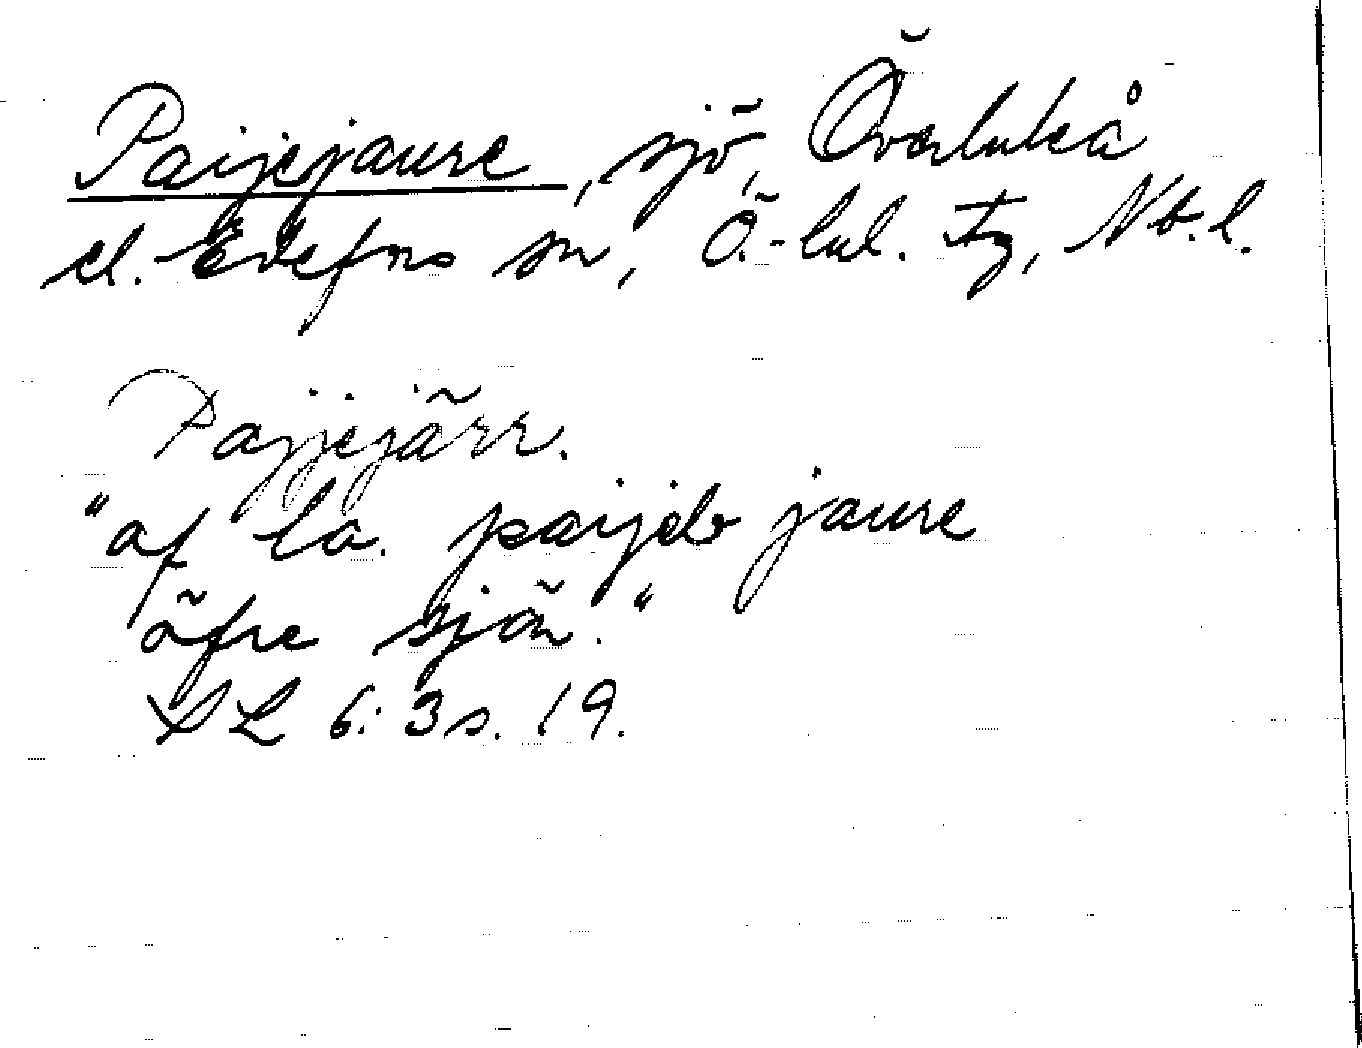 Paijejaure, sjö, Överluleå
el. Edefors sn, Ö.-lul. tg, Nb.l.
Pajjejärr.
"af la. paijeb jaure
öfre sjön."
SL 6:3 s. 19.